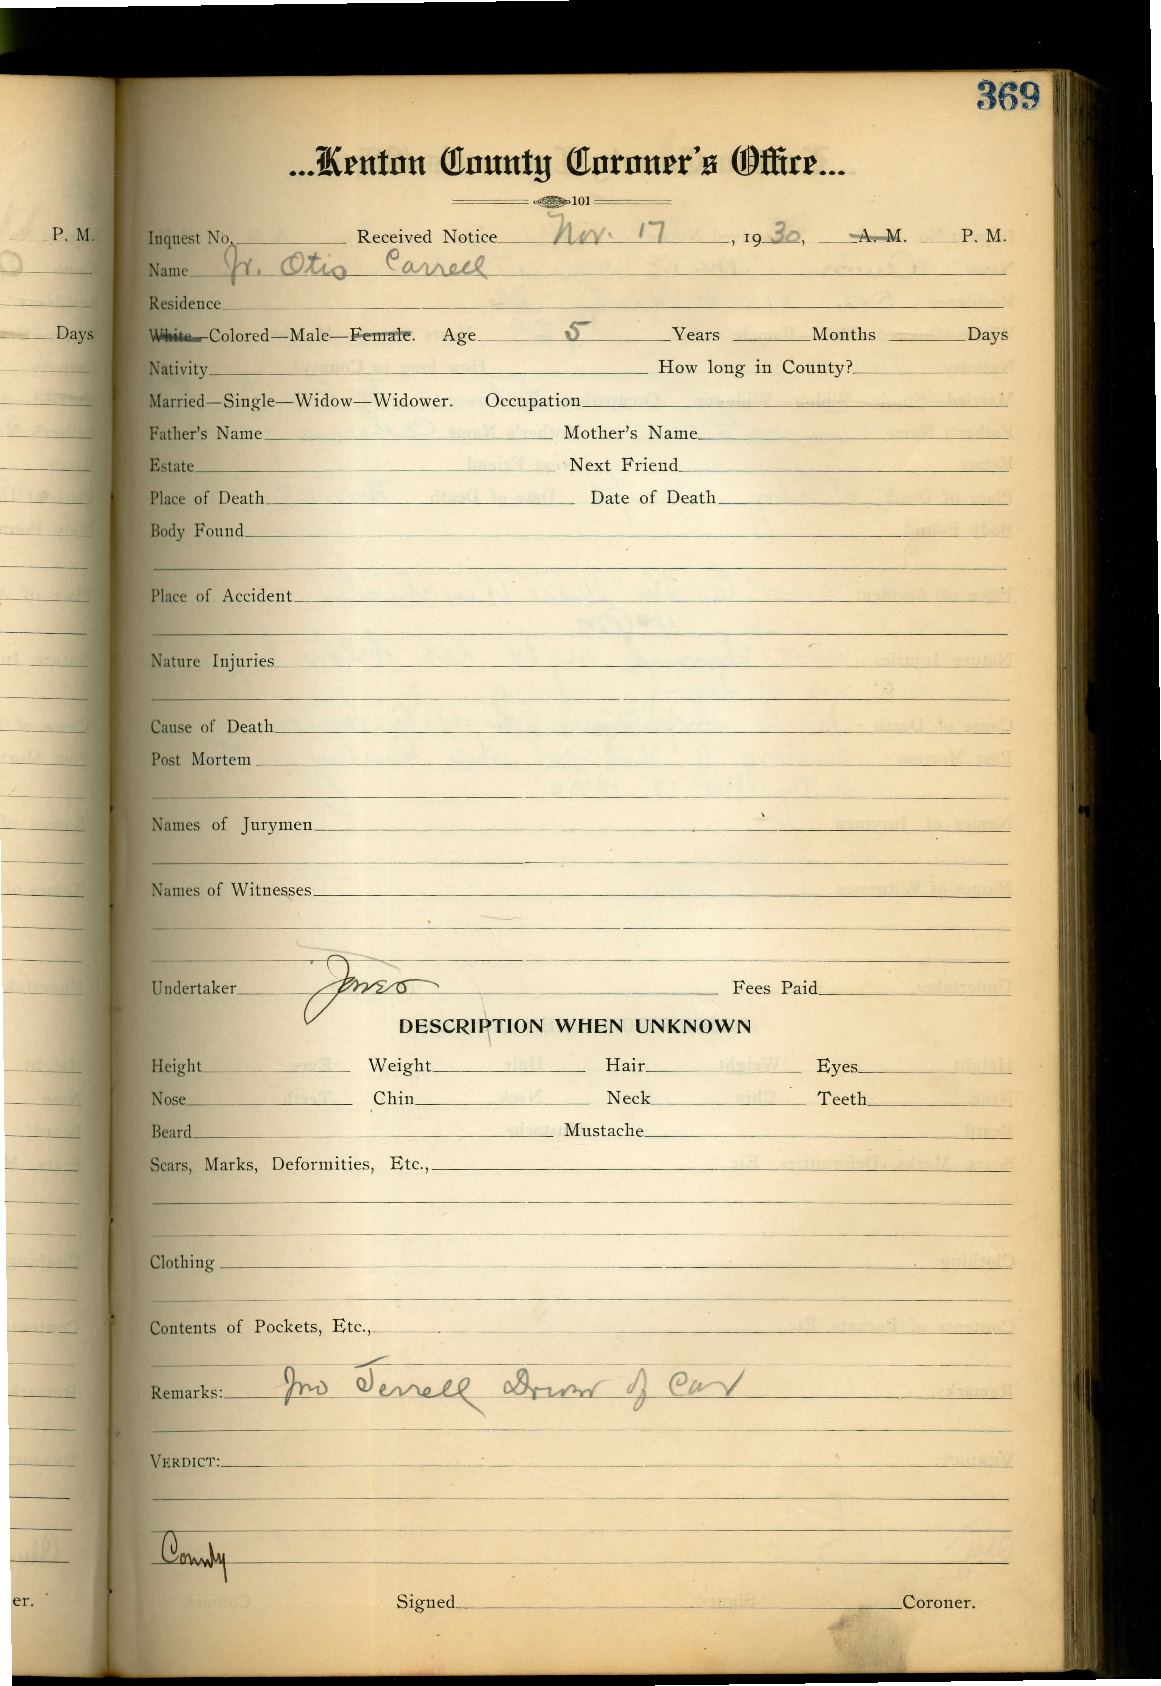 369
...Kenton County Coroner's Office...
101
P. M.
Inquest No. Received Notice Nov. 17, 1930, A. M. P. M.
Name Jr. Otis Carrell
Residence
Days
White—Colored—Male—Female. Age 5 Years Months Days
Nativity How long in County?
Married—Single—Widow—Widower. Occupation
Father's Name Mother's Name
Estate Next Friend
Place of Death Date of Death
Body Found
Place of Accident
Nature Injuries
Cause of Death
Post Mortem
Names of Jurymen
Names of Witnesses
Undertaker Jones Fees Paid
DESCRIPTION WHEN UNKNOWN
Height Weight Hair Eyes
Nose Chin Neck Teeth
Beard Mustache
Scars, Marks, Deformities, Etc.,
Clothing
Contents of Pockets, Etc.,
Remarks: Jno Terrell Driver of Car
VERDICT:
County
er.
Signed Coroner.